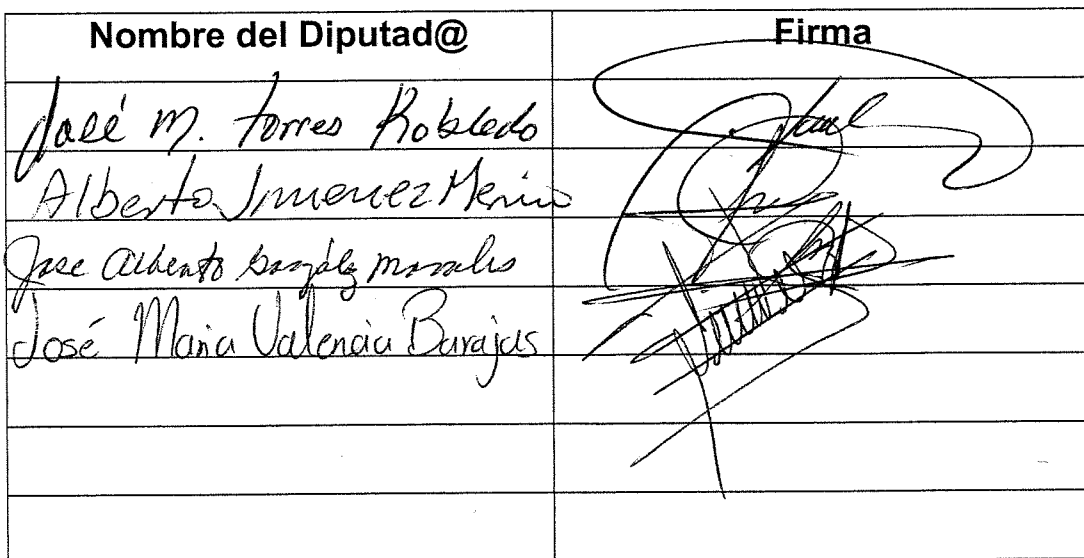 Nombre del Diputad@ Firma
José M. Torres Robledo
Alberto Jimenez Merino
Jose Alberto González Morales
José Maria Valencia Barajas